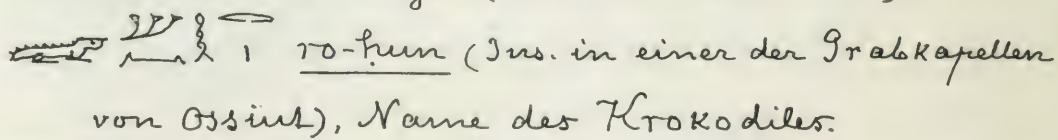 ro-ḫun (Ins. in einer der Grabkapellen
von Ossiut), Name des Krokodiles.